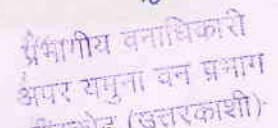 प्रभागीय वनाधिकारी
अपर यमुना वन प्रभाग
(उत्तरकाशी)